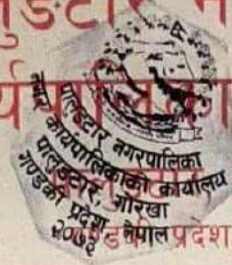 ुङटार न
र्यपालिका
पालुङटार नगरपालिका
नगर कार्यपालिकाको कार्यालय
पालुङटार, गोरखा
गण्डकी प्रदेश, नेपाल
२०७३
प्रदेश